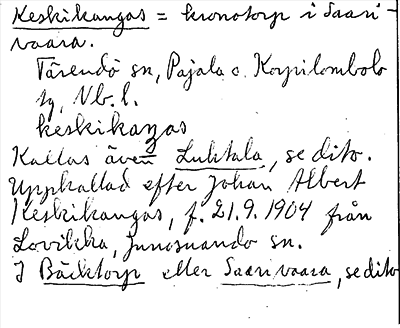 Keskikangas = kronotorp i Saari-
vaara.
Tärendö sn, Pajala o. Korpilombolo
tg, Nb. l.
keskikaŋas
Kallas även Luhtala, se dito.
Uppkallad efter Johan Albert
Keskikangas, f. 21.9.1904 från
Lovikka, Junosuando sn.
I Bäcktorp eller Saarivaara, se dito